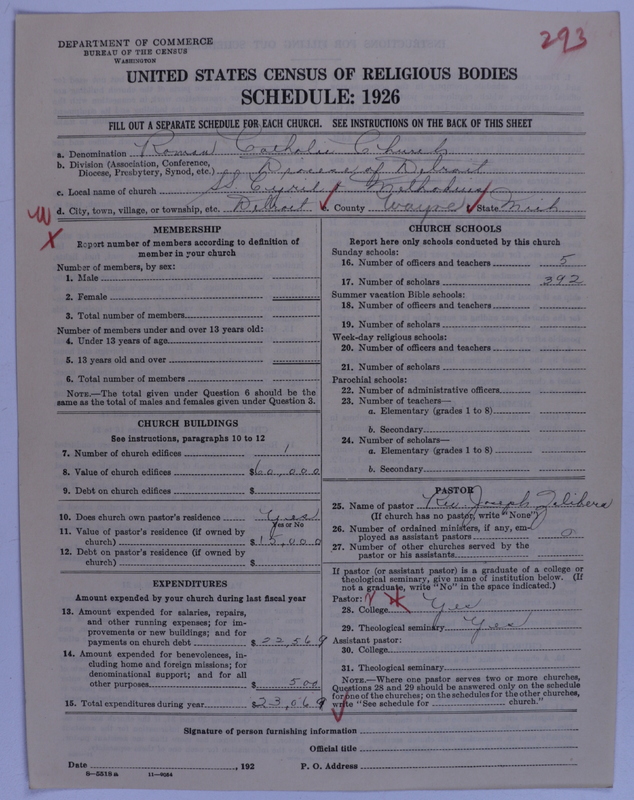 293
DEPARTMENT OF COMMERCE
BUREAU OF THE CENSUS
WASHINGTON
UNITED STATES CENSUS OF RELIGIOUS BODIES
SCHEDULE: 1926
FILL OUT A SEPARATE SCHEDULE FOR EACH CHURCH. SEE INSTRUCTIONS ON THE BACK OF THIS SHEET
a. Denomination Roman Catholic Church
b. Division (Association, Conference, Diocese, Presbytery, Synod, etc.) Diocese of Detroit
c. Local name of church SS Cyril & Methodius
d. City, town, village, or township, etc. Detroit e. County Wayne State Mich
MEMBERSHIP
Report number of members according to definition of
member in your church
Number of members, by sex:
1. Male
2. Female
3. Total number of members
Number of members under and over 13 years old:
4. Under 13 years of age
5. 13 years old and over
6. Total number of members
NOTE.—The total given under Question 6 should be the
same as the total of males and females given under Question 3.
CHURCH BUILDINGS
See instructions, paragraphs 10 to 12
7. Number of church edifices 1
8. Value of church edifices $60,000
9. Debt on church edifices $
10. Does church own pastor's residence Yes
Yes or No
11. Value of pastor's residence (if owned by
church) $15,000
12. Debt on pastor's residence (if owned by
church) $
EXPENDITURES
Amount expended by your church during last fiscal year
13. Amount expended for salaries, repairs,
and other running expenses; for im-
provements or new buildings; and for
payments on church debt $22,569
14. Amount expended for benevolences, in-
cluding home and foreign missions; for
denominational support; and for all
other purposes $500
15. Total expenditures during year $23,069
CHURCH SCHOOLS
Report here only schools conducted by this church
Sunday schools:
16. Number of officers and teachers 5
17. Number of scholars 392
Summer vacation Bible schools:
18. Number of officers and teachers
19. Number of scholars
Week-day religious schools:
20. Number of officers and teachers
21. Number of scholars
Parochial schools:
22. Number of administrative officers
23. Number of teachers—
a. Elementary (grades 1 to 8)
b. Secondary
24. Number of scholars—
a. Elementary (grades 1 to 8)
b. Secondary
PASTOR
25. Name of pastor Rev. Joseph
(If church has no pastor, write "None")
26. Number of ordained ministers, if any, em-
ployed as assistant pastors 0
27. Number of other churches served by the
pastor or his assistants
If pastor (or assistant pastor) is a graduate of a college or
theological seminary, give name of institution below. (If
not a graduate, write "No" in the space indicated.)
Pastor:
28. College Yes
29. Theological seminary Yes
Assistant pastor:
30. College
31. Theological seminary
NOTE.—Where one pastor serves two or more churches,
Questions 28 and 29 should be answered only on the schedule
for one of the churches; on the schedules for the other churches,
write "See schedule for church."
Signature of person furnishing information
Official title
Date , 192 P. O. Address
8—5518a 11—9054